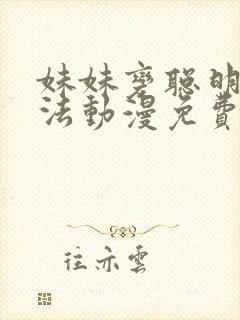 妹妹變聰明
法動漫免費
往亦雲